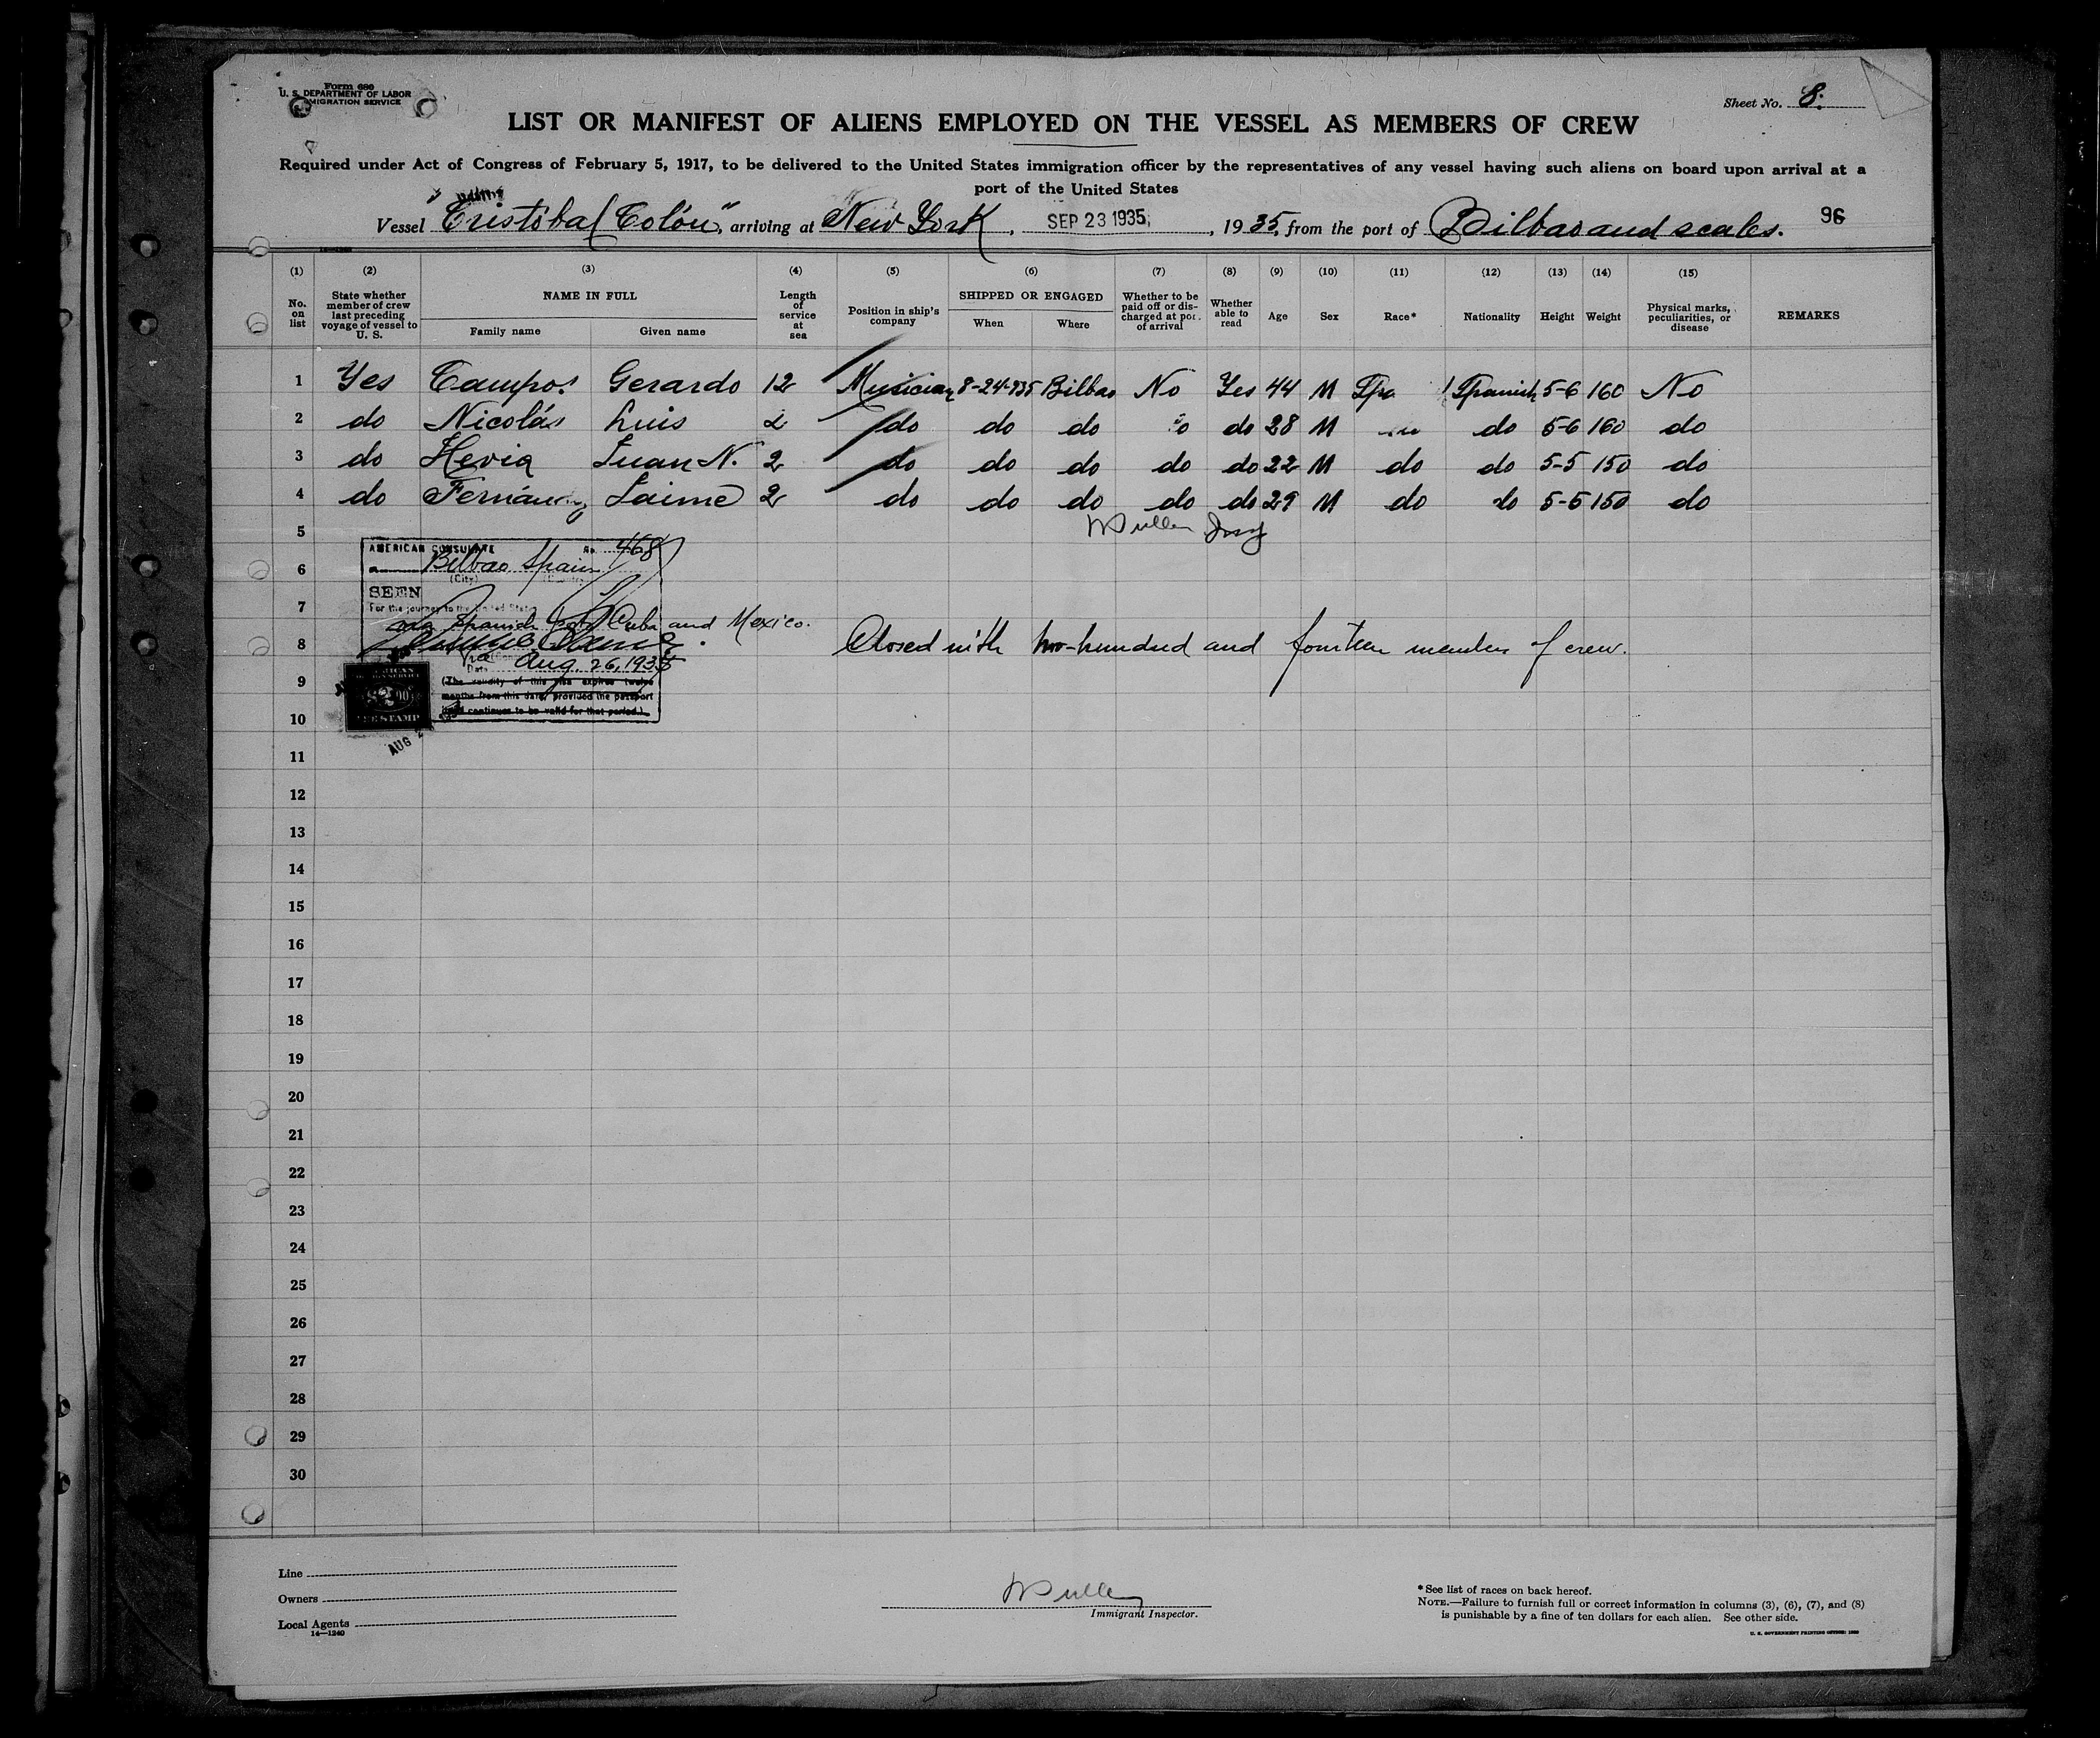 Form 680
U. S. DEPARTMENT OF LABOR
IMMIGRATION SERVICE
Sheet No. 8.
LIST OR MANIFEST OF ALIENS EMPLOYED ON THE VESSEL AS MEMBERS OF CREW
Required under Act of Congress of February 5, 1917, to be delivered to the United States immigration officer by the representatives of any vessel having such aliens on board upon arrival at a
port of the United States
Vessel "Cristóbal Colón", arriving at New York, SEP 23 1935, 1935, from the port of Bilbao and scales. 96
(1) (2) (3) (4) (5) (6) (7) (8) (9) (10) (11) (12) (13) (14) (15)
No. on list State whether member of crew last preceding voyage of vessel to U. S. NAME IN FULL Family name Given name Length of service at sea Position in ship's company SHIPPED OR ENGAGED When Where Whether to be paid off or discharged at port of arrival Whether able to read Age Sex Race* Nationality Height Weight Physical marks, peculiarities, or disease REMARKS
1 Yes Campos Gerardo 12 Musician 8-24-935 Bilbao No Yes 44 M Spa Spanish 5-6 160 No
2 do Nicolás Luis 2 do do do do 28 M do 5-6 160 do
3 do Hevia Juan N. 2 do do do do do 22 M do do 5-5 150 do
4 do Jaime 2 do do do do do 29 M do do 5-5 150 do
5 Mullen Insp
AMERICAN CONSULATE No. 468
6 Bilbao Spain
(City)
SEEN
7 For the journey to the United States
Spanish Cuba and Mexico.
8 Closed with two-hundred and fourteen members of crew.
Date Aug. 26, 1935
9 (The validity of this visa expires twelve
months from this date, provided the passport
10 continues to be valid for that period.)
$2.00
FEE STAMP
AUG 2
11
12
13
14
15
16
17
18
19
20
21
22
23
24
25
26
27
28
29
30
Line
Owners
Local Agents
14—1240
Mullen
Immigrant Inspector.
* See list of races on back hereof.
NOTE.—Failure to furnish full or correct information in columns (3), (6), (7), and (8)
is punishable by a fine of ten dollars for each alien. See other side.
U. S. GOVERNMENT PRINTING OFFICE: 1930